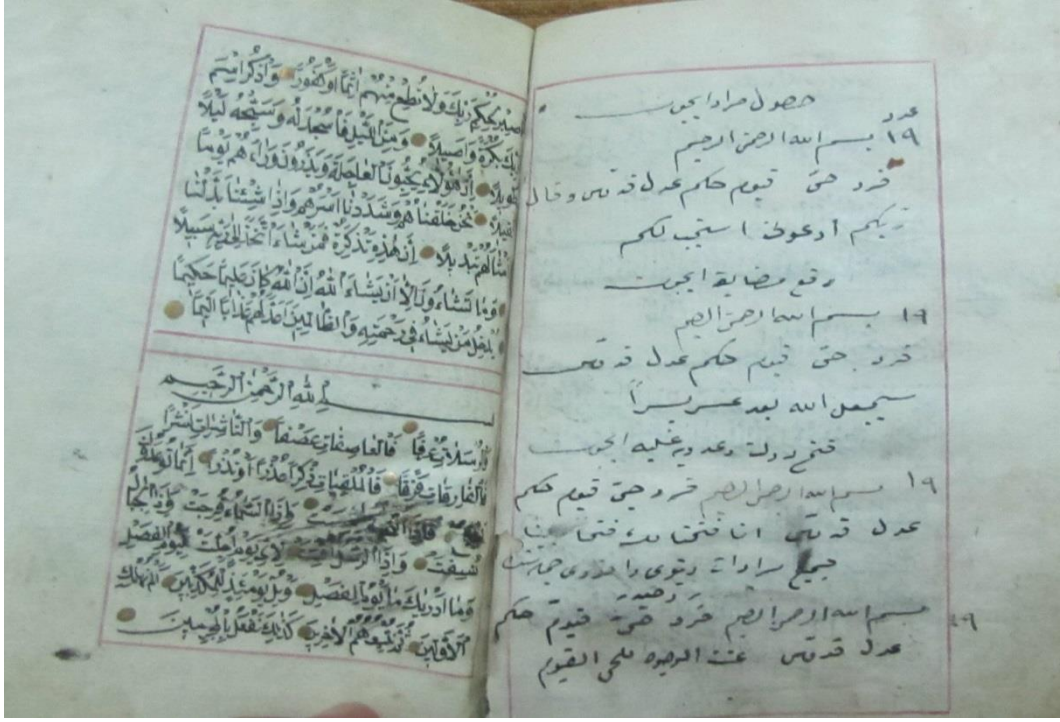 حصول مراد ايجون
عدد
١٩ بسم الله الرحمن الرحيم
فرد حىّ قيوم حكم عدل قدوس وقال
ربكم ادعونى استجب لكم
دفع مضايقه ايجون
١٩ بسم الله الرحمن الرحيم
فرد حىّ قيوم حكم عدل قدوس
سيجعل الله بعد عسر يسراً
فتح دولت وعدويه غلبه ايجون
١٩ بسم الله الرحمن الرحيم فرد حىّ قيوم حكم
عدل قدوس انا فتحنا لك فتحا مبينا
جميع مرادات دنيوى واخروى
١٩ بسم الله الرحمن الرحيم فرد حىّ قيوم حكم
عدل قدوس عنت الوجوه للحى القيوم
فَاصْبِرْ لِحُكْمِ رَبِّكَ وَلَا تُطِعْ مِنْهُمْ اٰثِمًا اَوْ كَفُورًا وَاذْكُرِ اسْمَ
رَبِّكَ بُكْرَةً وَاَصِيلًا وَمِنَ الَّيْلِ فَاسْجُدْ لَهُ وَسَبِّحْهُ لَيْلًا
طَوِيلًا اِنَّ هٰؤُلَاءِ يُحِبُّونَ الْعَاجِلَةَ وَيَذَرُونَ وَرَاءَهُمْ يَوْمًا
ثَقِيلًا نَحْنُ خَلَقْنَاهُمْ وَشَدَدْنَا اَسْرَهُمْ وَاِذَا شِئْنَا بَدَّلْنَا
اَمْثَالَهُمْ تَبْدِيلًا اِنَّ هٰذِهِ تَذْكِرَةٌ فَمَنْ شَاءَ اتَّخَذَ اِلٰى رَبِّهِ سَبِيلًا
وَمَا تَشَاؤُنَ اِلَّا اَنْ يَشَاءَ اللّٰهُ اِنَّ اللّٰهَ كَانَ عَلِيمًا حَكِيمًا
يُدْخِلُ مَنْ يَشَاءُ فِى رَحْمَتِهِ وَالظَّالِمِينَ اَعَدَّ لَهُمْ عَذَابًا اَلِيمًا
بِسْمِ اللّٰهِ الرَّحْمٰنِ الرَّحِيمِ
وَالْمُرْسَلَاتِ عُرْفًا فَالْعَاصِفَاتِ عَصْفًا وَالنَّاشِرَاتِ نَشْرًا
فَالْفَارِقَاتِ فَرْقًا فَالْمُلْقِيَاتِ ذِكْرًا عُذْرًا اَوْ نُذْرًا اِنَّمَا تُوعَدُونَ
فَاِذَا النُّجُومُ وَاِذَا السَّمَاءُ فُرِجَتْ وَاِذَا الْجِبَالُ
نُسِفَتْ وَاِذَا الرُّسُلُ اُقِّتَتْ لِاَىِّ يَوْمٍ اُجِّلَتْ لِيَوْمِ الْفَصْلِ
وَمَا اَدْرٰيكَ مَا يَوْمُ الْفَصْلِ وَيْلٌ يَوْمَئِذٍ لِلْمُكَذِّبِينَ اَلَمْ نُهْلِكِ
الْاَوَّلِينَ ثُمَّ نُتْبِعُهُمُ الْاٰخِرِينَ كَذٰلِكَ نَفْعَلُ بِالْمُجْرِمِينَ